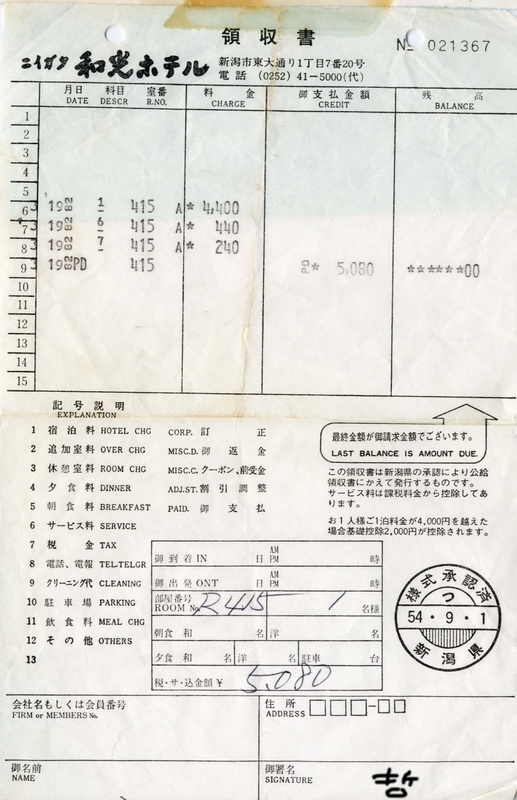 領収書
№ 021367
ニイガタ 和光ホテル
新潟市東大通り1丁目7番20号
電話 (0252) 41-5000(代)
月日 DATE 科目 DESCR 室番 R.NO. 料金 CHARGE 御支払金額 CREDIT 残高 BALANCE
1
2
3
4
5
6 3 19 82 1 415 A* 4,400
7 3 19 82 6 415 A* 440
8 3 19 82 7 415 A* 240
9 3 19 82 PD 415 PD * 5,080 ******00
10
11
12
13
14
15
記号説明
EXPLANATION
1 宿泊料 HOTEL CHG CORP. 訂正
2 追加室料 OVER CHG MISC.D. 御返金
3 休憩室料 ROOM CHG MISC.C. クーポン、前受金
4 夕食料 DINNER ADJ.ST. 割引調整
5 朝食料 BREAKFAST PAID. 御支払
6 サービス料 SERVICE
7 税金 TAX
8 電話、電報 TEL.TELGR
9 クリーニング代 CLEANING
10 駐車場 PARKING
11 飲食料 MEAL CHG
12 その他 OTHERS
13
最終金額が御請求金額でございます。
LAST BALANCE IS AMOUNT DUE.
この領収書は新潟県の承認により公給
領収書にかえて発行するものです。
サービス料は課税料金から控除してあ
ります。
お1人様ご1泊料金が4,000円を越えた
場合基礎控除2,000円が控除されます。
御到着 IN 日 AM PM 時
御出発 ONT 日 AM PM 時
部屋番号 ROOM No. R415 1 名様
朝食 和 名 洋 名
夕食 和 名 洋 名 駐車 台
税・サ・込金額 ¥ 5,080
様式承認済
つ
54・9・1
新潟県
会社名もしくは会員番号
FIRM or MEMBERS No.
住所
ADDRESS □□□-□□
御名前
NAME
御署名
SIGNATURE